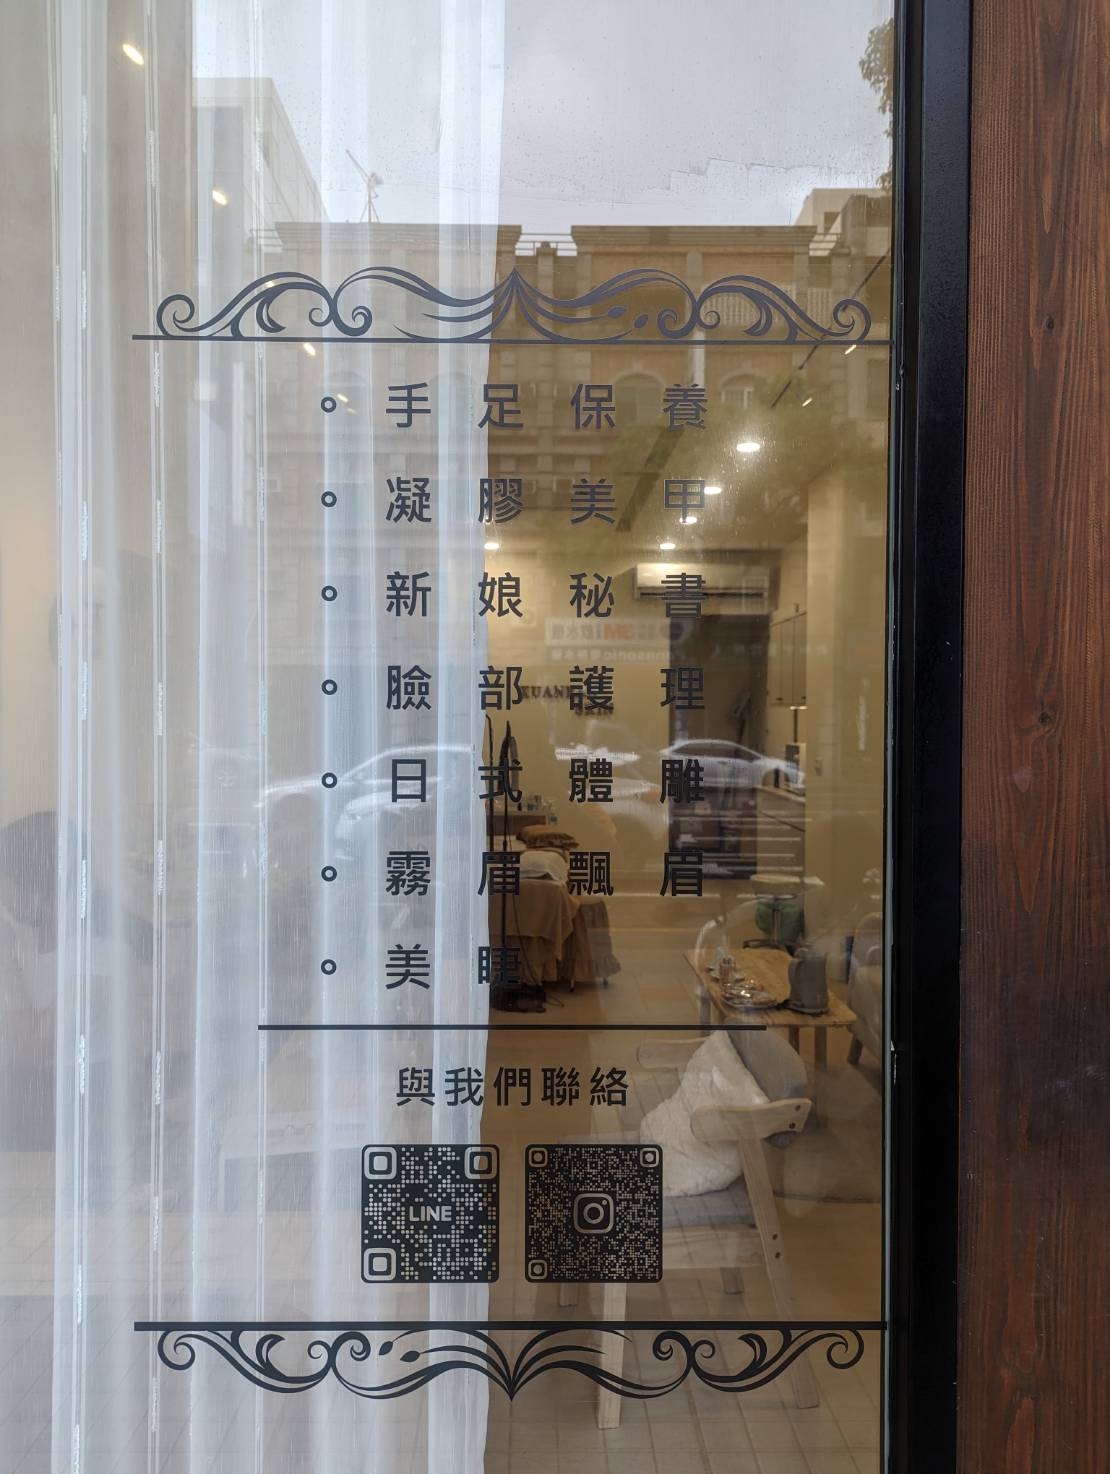 手足保養
凝膠美甲
新娘秘書
臉部護理
日式體雕
霧眉飄眉
美睫
與我們聯絡
LINE
Panasonic
SKIN